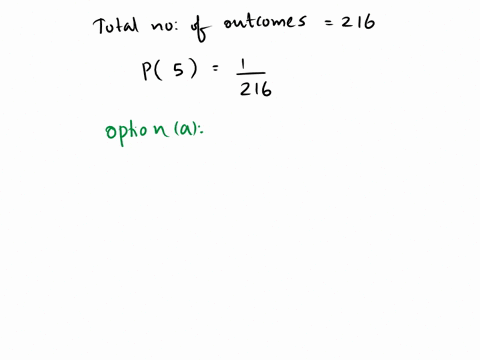 Total no: of outcomes = 216
P( 5 ) = 1/216
option(a):